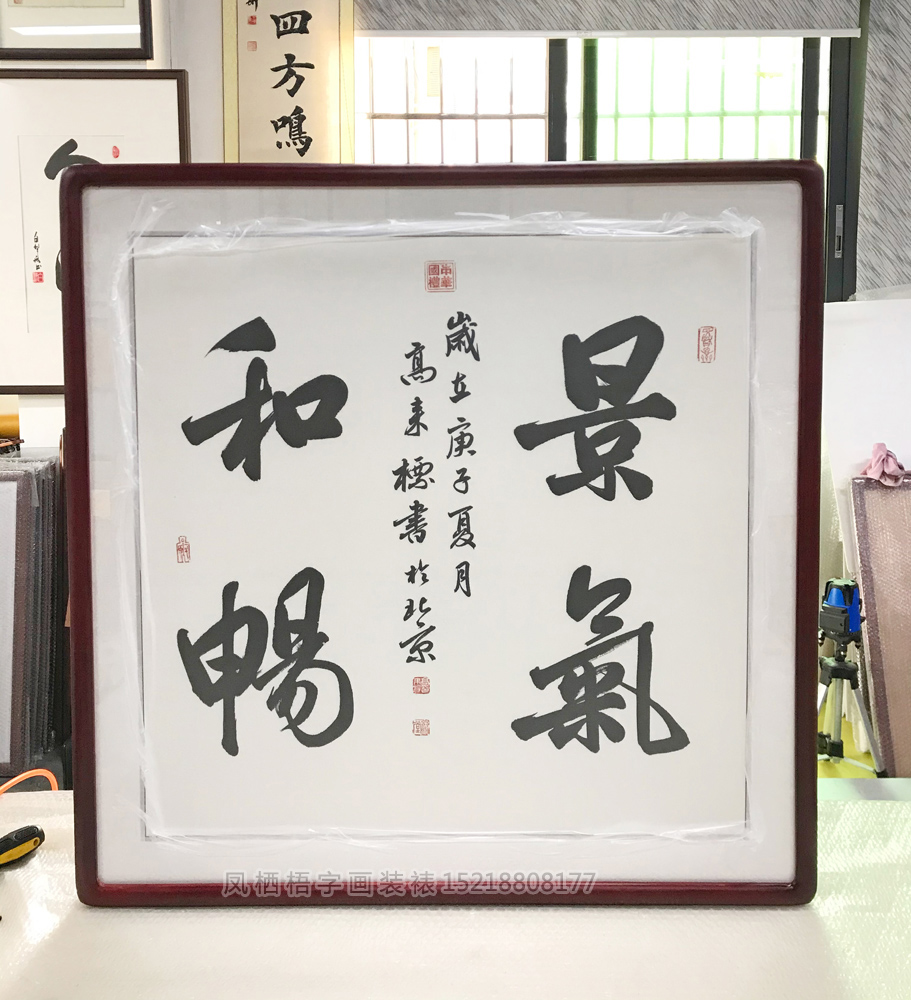 四方鳴
景氣
和暢
歲在庚子夏月
高來標書於北京
中華國禮
凤栖梧字画装裱 15218808177